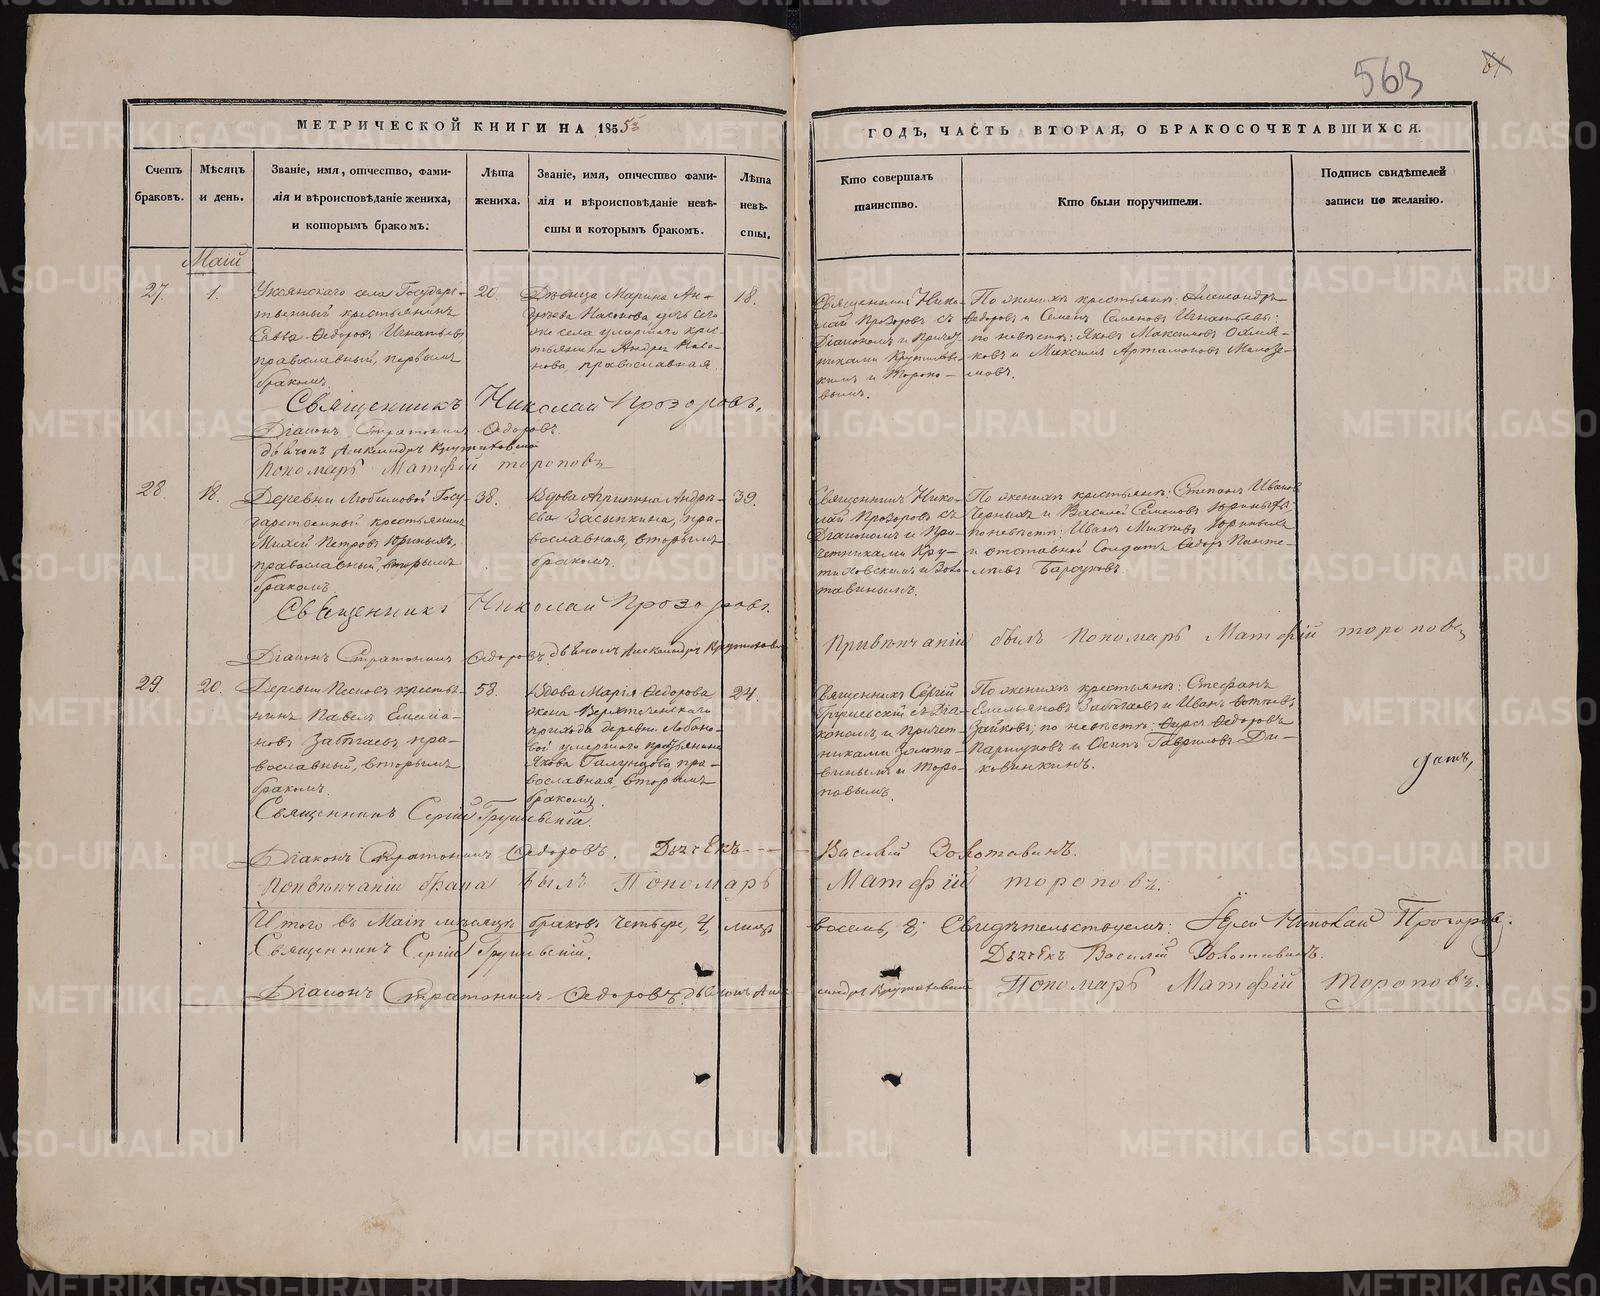 563
МЕТРИЧЕСКОЙ КНИГИ НА 1853
ГОДЪ, ЧАСТЬ ВТОРАЯ, О БРАКОСОЧЕТАВШИХСЯ.
Счетъ браковъ.
Мѣсяцъ и день.
Званіе, имя, отчество, фами-
лія и вѣроисповѣданіе жениха,
и которымъ бракомъ.
Лѣта жениха.
Званіе, имя, отчество фами-
лія и вѣроисповѣданіе невѣ-
сты и которымъ бракомъ.
Лѣта невѣ-
сты.
Кто совершалъ
таинство.
Кто были поручители.
Подпись свидѣтелей
записи по желанію.
Маій
27.
1.
Уксянскаго села Государс-
твенный крестьянинъ
Савва Ѳедоровъ Игнатьевъ
православный, первымъ
бракомъ.
20.
Дѣвица Марина Ан-
дреева
же села умершаго крес-
тьянина Андрея
православная.
18.
Священникъ Нико-
лай Прозоровъ съ
Діакономъ и Причет-
никами Крутиховс-
кимъ и Торопо-
вымъ.
По женихѣ крестьяне: Александръ
Ѳедоровъ и Семенъ Семеновъ Игнатьевы;
по невѣстѣ: Яковъ Максимовъ
и Максимъ Артамоновъ
Священникъ Николай Прозоровъ.
Діаконъ Стратоникъ Ѳедоровъ.
Дьячокъ Александръ Крутиховской
Пономарь Матфій Тороповъ
28.
18.
Деревни Любимовой Госу-
дарственный крестьянинъ
Михей Петровъ Юриныхъ,
православный, вторымъ
бракомъ.
38.
Вдова Агрипина Андре-
ева Засыпкина, пра-
вославная, вторымъ
бракомъ.
39.
Священникъ Нико-
лай Прозоровъ съ
Діакономъ и При-
четниками Кру-
тиховскимъ и Золо-
тавинымъ.
По женихѣ крестьяне: Степанъ Ивановъ
Черныхъ и Василій Семеновъ Юриныхъ
по невѣстѣ: Иванъ Юриныхъ
и отставной Солдатъ Ѳедоръ Панте-
лѣевъ Барсуковъ.
Священникъ Николай Прозоровъ.
Діаконъ Стратоникъ Ѳедоровъ. Дьячокъ Александръ Крутиховской
При вѣнчаніи былъ Пономарь Матфій Тороповъ
29.
20.
Деревни крестья-
нинъ Павелъ Емелья-
новъ Забѣгаевъ, пра-
вославный, вторымъ
бракомъ.
53.
Вдова Марія Ѳедорова
жена Верхтеченскаго
прихода деревни Лобано-
вой умершаго крестьянина
Якова Галунцова пра-
вославная, вторымъ
бракомъ.
24.
Священникъ Сергій
съ Діа-
кономъ и Причет-
никами Золота-
винымъ и Торо-
повымъ.
По женихѣ крестьяне: Стефанъ
Емельяновъ Забѣгаевъ и Иванъ
Зайковъ; по невѣстѣ: Ѳедоровъ
Паршуковъ и Осипъ Гавриловъ Ди-
ковинкинъ.
Священникъ Сергій
Діаконъ Стратоникъ Ѳедоровъ. Дьячекъ Василій Золотавинъ.
При вѣнчаніи брака былъ Пономарь Матфій Тороповъ.
Итого въ Маіѣ мѣсяцѣ браковъ четыре, 4, лицъ восемь, 8; Свидѣтельствуемъ: Іерей Николай Прозоровъ.
Священникъ Сергій
Дьячекъ Василій Золотавинъ.
Діаконъ Стратоникъ Ѳедоровъ. Дьячокъ Александръ Крутиховской Пономарь Матфій Тороповъ.
METRIKI.GASO-URAL.RU